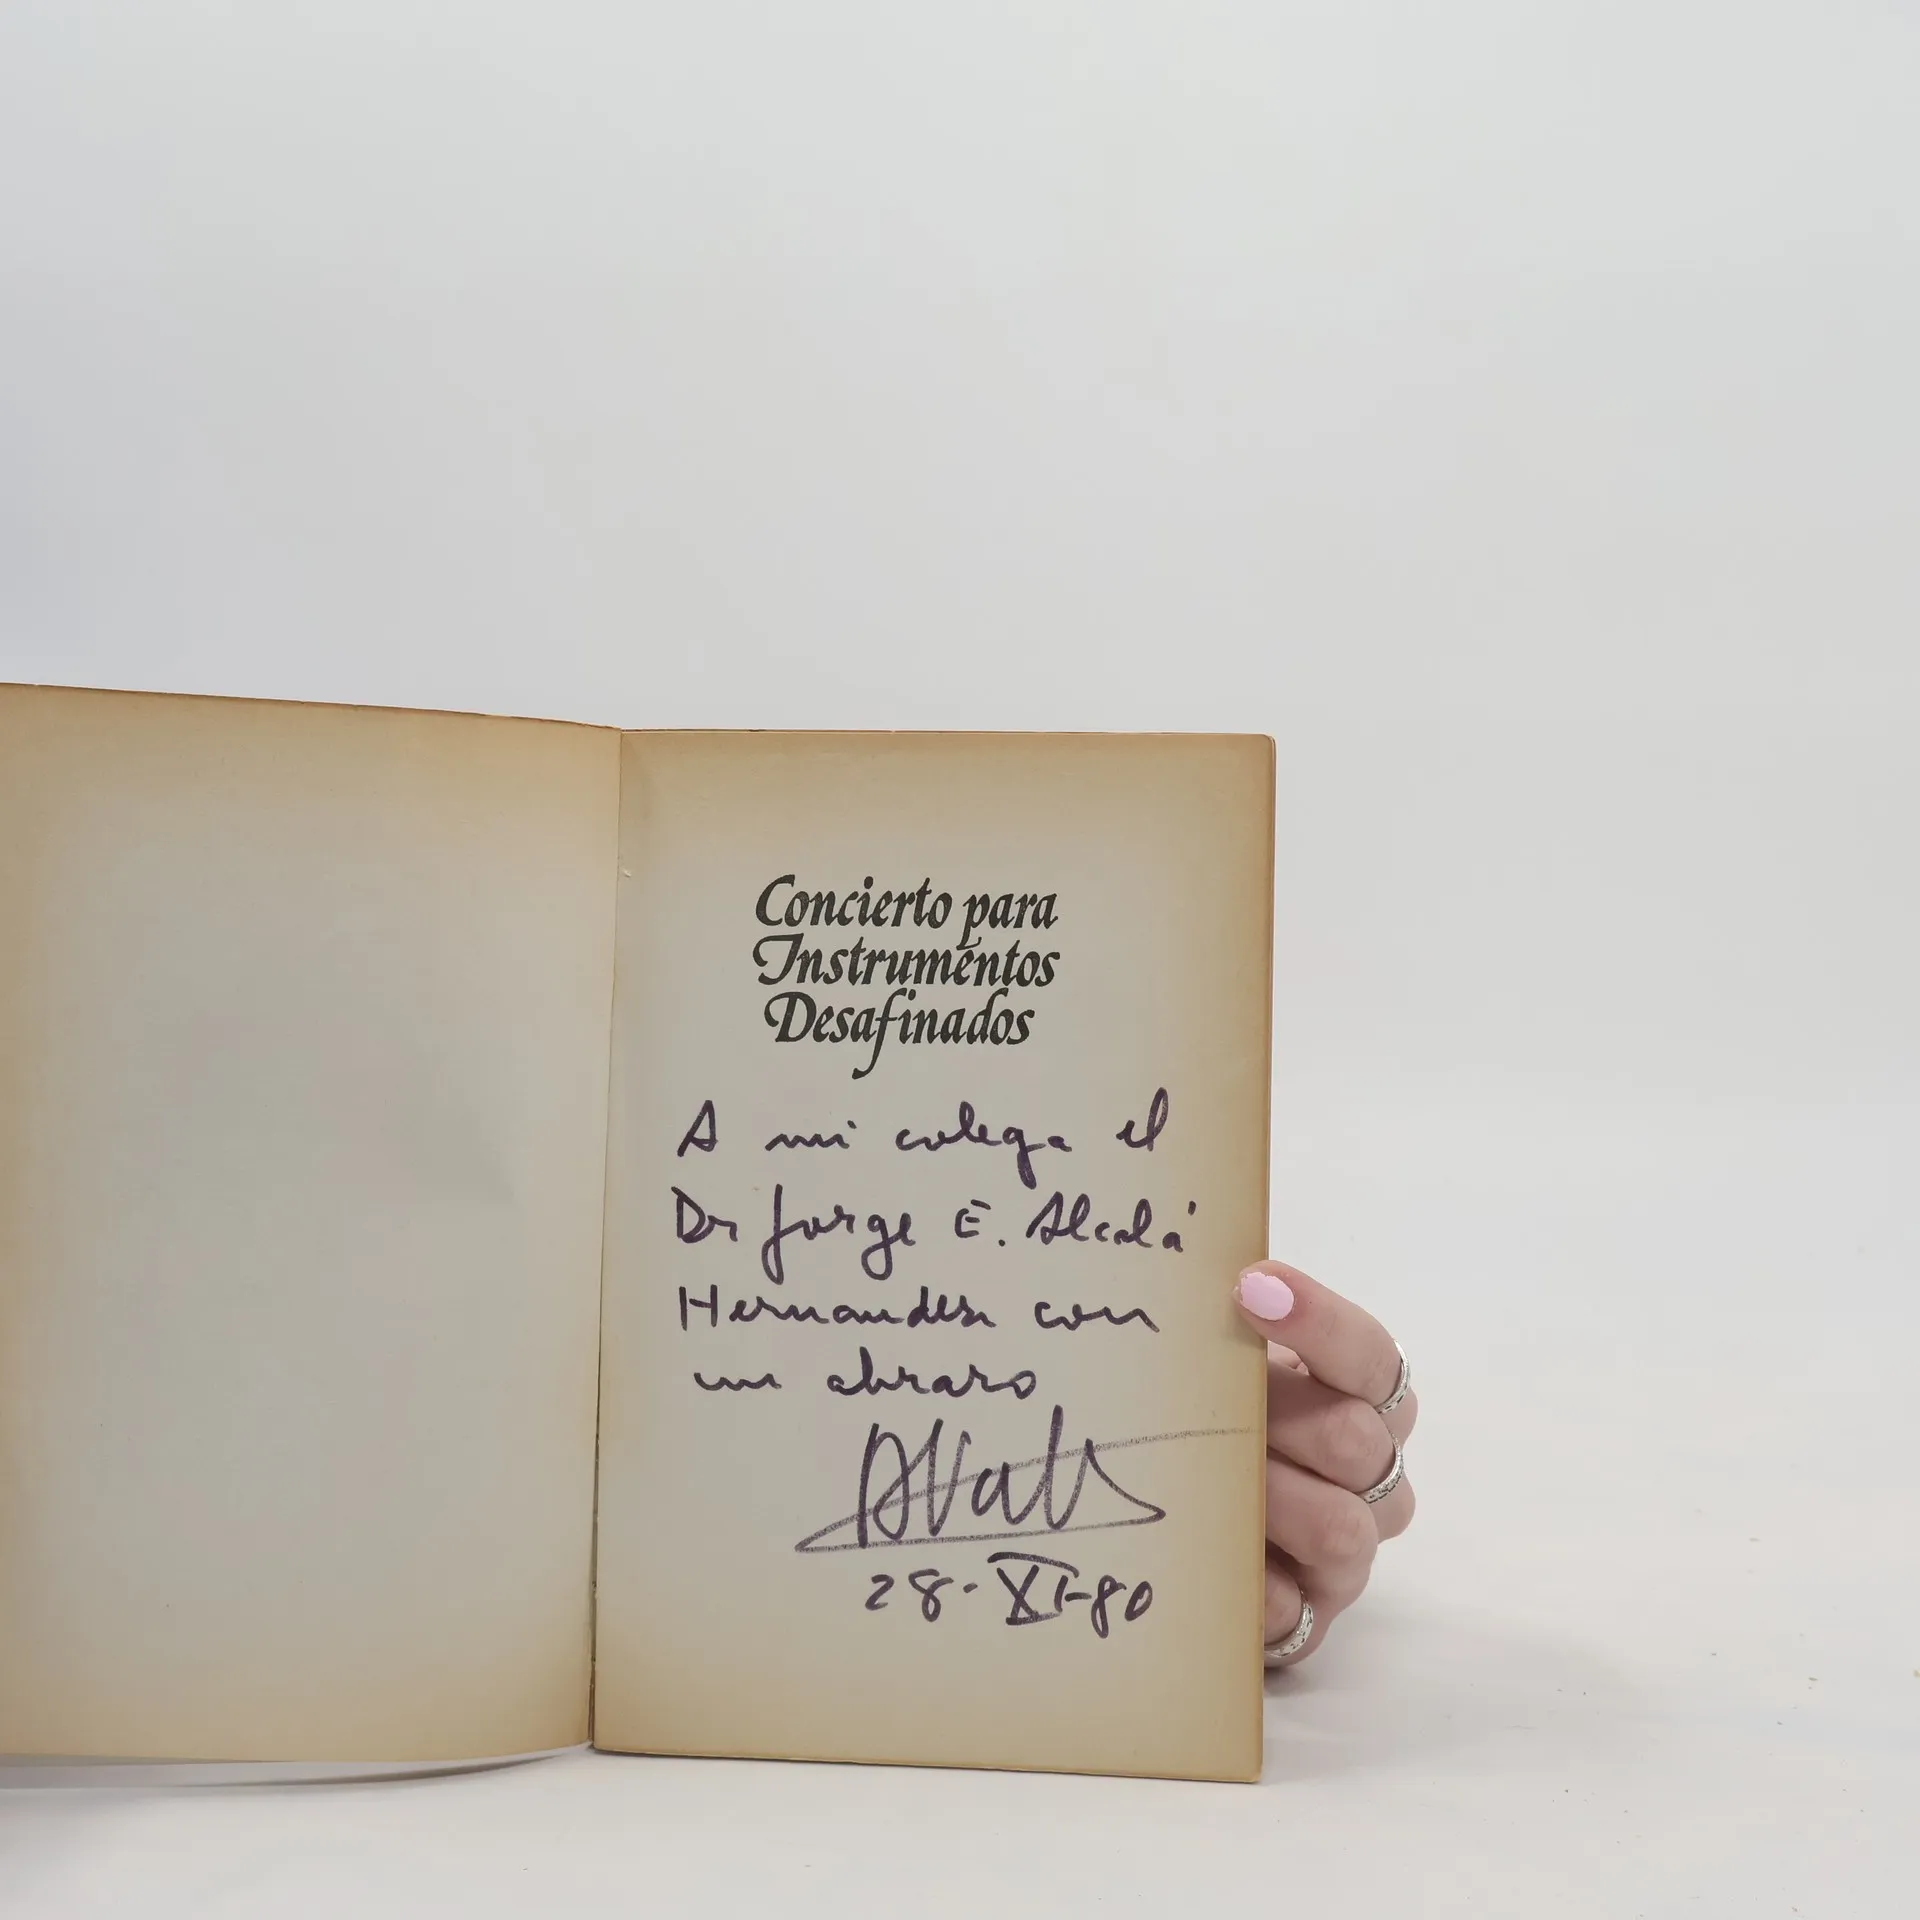 Concierto para
Instrumentos
Desafinados
A mi colega el
Dr Jorge E. Alcalá
Hernandez con
un abrazo
28-XI-80